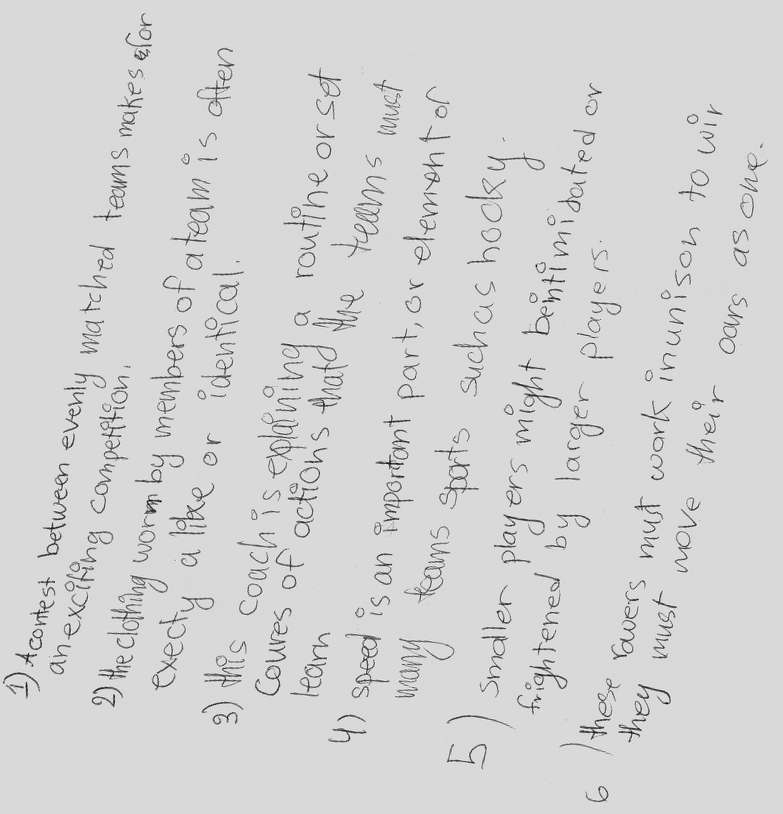 1) A contest between evenly matched teams makes for
an exciting competition.
2) the clothing worm by members of a team is often
execty a like or identical.
3) this coach is explaining a routine or set
coures of actions that the teams must
learn
4) speed is an important part, or element or
many teams sports such as hocky.
5) smaller players might be intimidated or
frightened by larger players.
6) these rowers must work in unison to wir
they must move their oars as one.